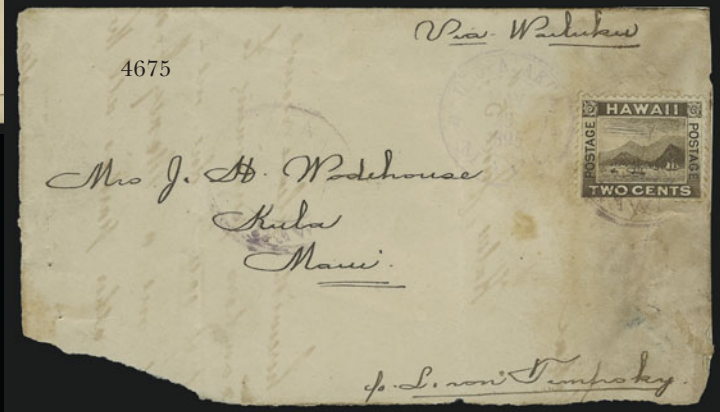 Via Wailuku
4675
HAWAII
POSTAGE
POSTAGE
TWO CENTS
Mrs J. H. Wodehouse
Kula
Maui.
c/o. L. von Tempsky.